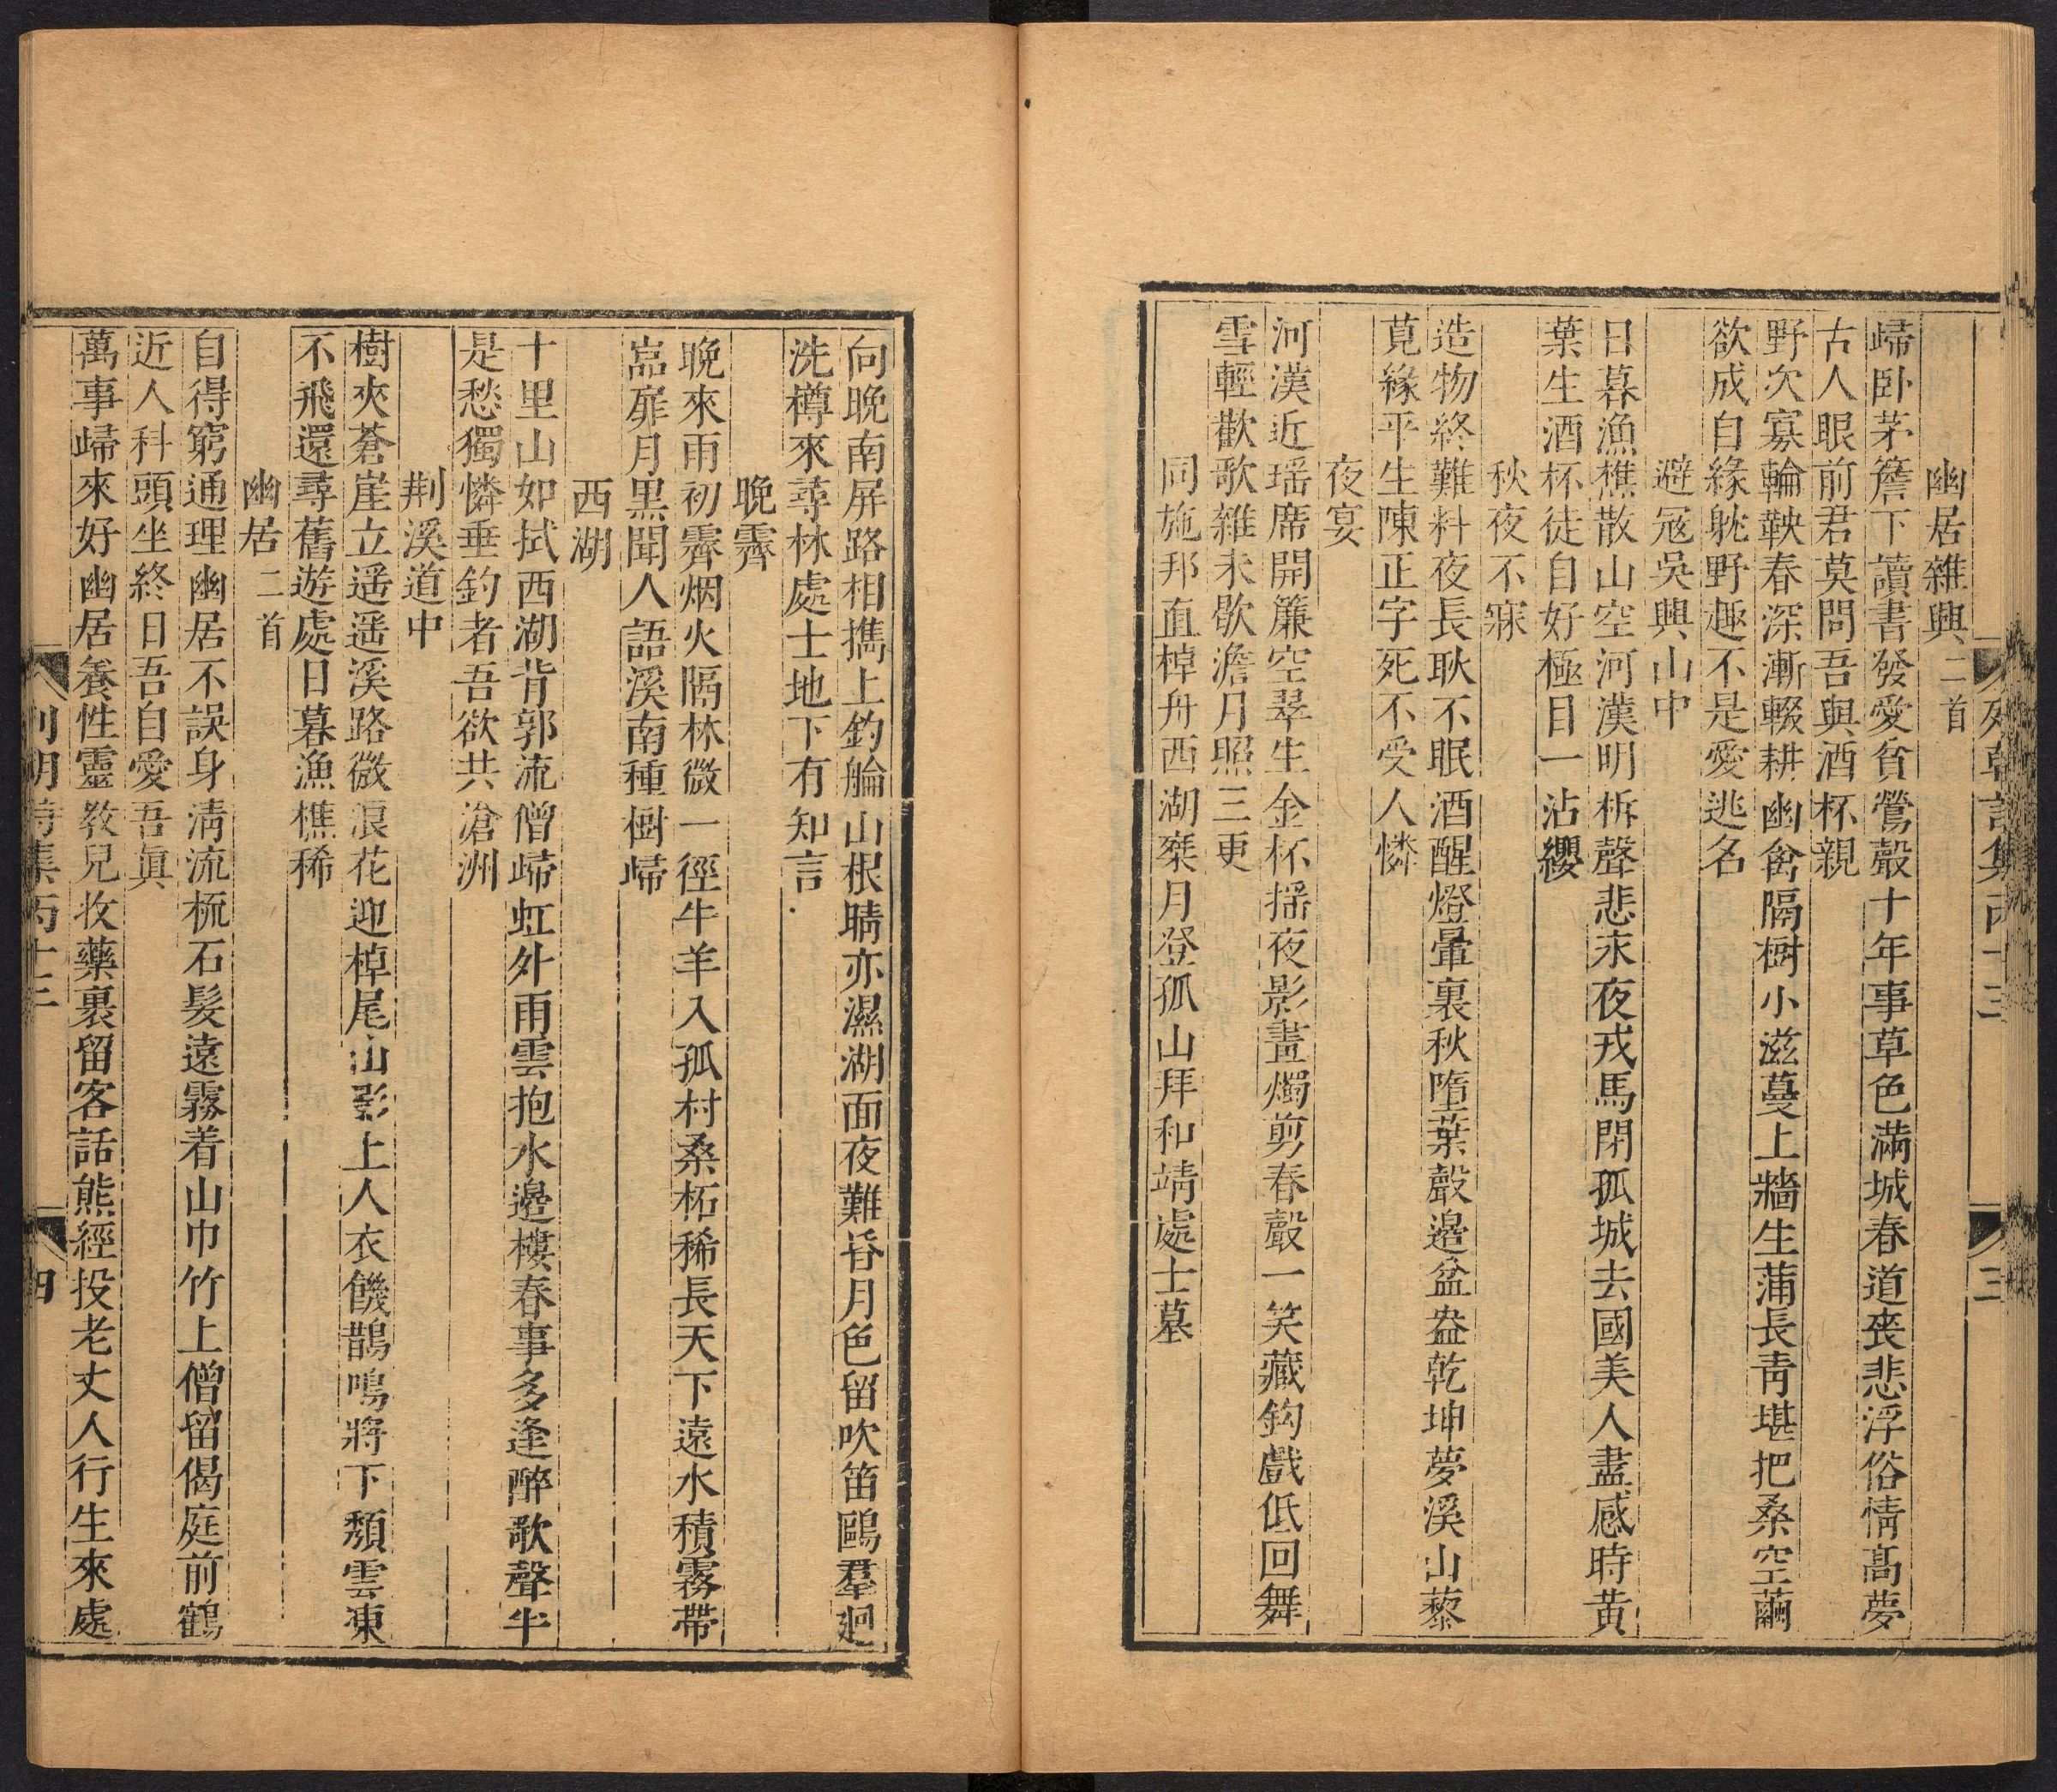 幽居雜興二首
歸卧茅簷下讀書發愛貧鶯聲十年事草色滿城春道喪悲浮俗情高夢
古人眼前君莫問吾與酒杯親
野次寡輪鞅春深漸輟耕幽禽隔樹小滋蔓上牆生蒲長青堪把桑空繭
欲成自緣躭野趣不是愛逃名
避冦吳興山中
日暮漁樵散山空河漢明柝聲悲永夜戎馬閉孤城去國美人盡感時黄
葉生酒杯徒自好極目一沾纓
秋夜不寐
造物終難料夜長耿不眠酒醒燈暈裏秋墮葉聲邉盆盎乾坤夢溪山藜
莧緣平生陳正字死不受人憐
夜宴
河漢近瑶席開簾空翠生金杯揺夜影畫燭剪春聲一笑藏鈎戲低回舞
雪輕歡歌雜未歇澹月照三更
同施邦直棹舟西湖椉月登孤山拜和靖處士墓
三
向晚南屏路相攜上釣艫山根晴亦濕湖面夜難昏月色留吹笛鷗羣廻
洗樽來尋林處士地下有知言
晩霽
晚來雨初霽烟火隔林微一徑牛羊入孤村桑柘稀長天下遠水積霧帶
嵓扉月黒聞人語溪南種樹歸
西湖
十里山如拭西湖背郭流僧歸虹外雨雲抱水邉樓春事多逢醉歌聲半
是愁獨憐垂釣者吾欲共滄洲
荆溪道中
樹夾蒼崖立遥遥溪路微浪花迎棹尾山影上人衣饑鵲鳴將下頽雲凍
不飛還尋舊遊處日暮漁樵稀
幽居二首
自得窮通理幽居不誤身清流梳石髮遠霧着山巾竹上僧留偈庭前鶴
近人科頭坐終日吾自愛吾眞
萬事歸來好幽居養性靈敎兒收藥裹留客話熊經投老丈人行生來處
四